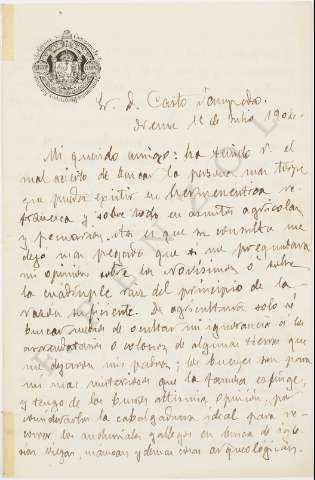 Sr. D. Casto Sampedro.
Orense 1º de Julio 1904.
Mi querido amigo: ha tenido V. el
mal acierto de buscar la persona mas torpe
que pueda existir en hermenéutica
y sobre todo en asuntos agrícolas
y pecuarios. Así es que su consulta me
dejó mas pegado que si me preguntara
mi opinion sobre los Novísimos ó sobre
la cuádruple raiz del principio de la
razon suficiente. De agricultura solo sé
buscar medios de ocultar mi ignorancia á los
arrendatarios ó colonos de algunas tierras que
me dejaron mis padres; los bueyes son para
mi mas misteriosos que la famosa esfinge,
y tengo de las burras altísima opinion, por
considerarlas la cabalgadura ideal para re-
correr los andurriales gallegos en busca de igle-
sias viejas, mámoas y demas cosas arqueológicas.